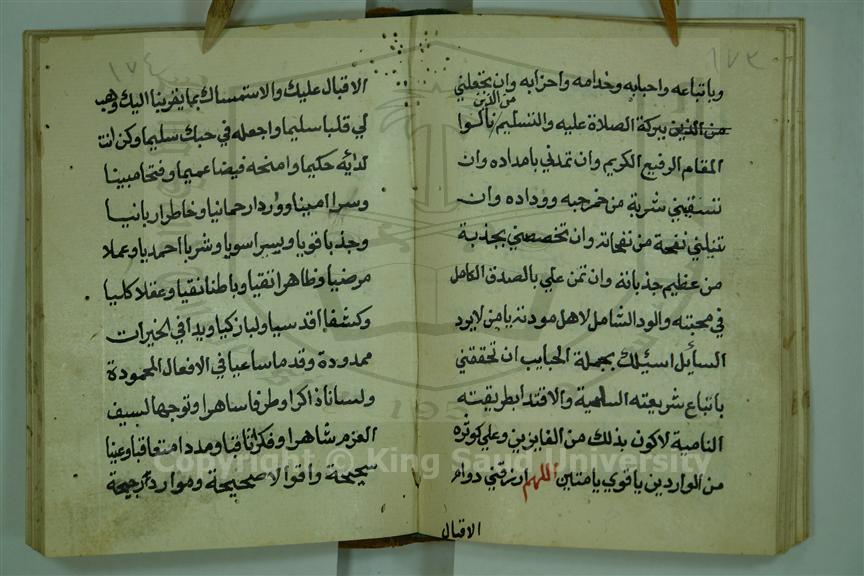 ١٧٣
وباتباعه واحبابه وخدامه واحزابه وان تجعلني
من الذين
من الذين ببركة الصلاة عليه والتسليم نالوا
المقام الرفيع الكريم وان تمدني بامداده وان
تسقيني شربة من خمر حبه ووداده وان
تنيلني نفحة من نفحاته وان تخصصني بجذبة
من عظيم جذباته وان تمن علي بالصدق الكامل
في محبته والود الشامل لاهل مودته يا من لا يرد
السايل اسيلك بجملة الحبايب ان تحققني
باتباع شريعته السامية والاقتدا بطريقته
النامية لاكون بذلك من الفايزين وعلي كوثره
من الواردين يا قوي يا متين اللهم ارزقني دوام
الاقبال
١٧٤
الاقبال عليك والاستمساك بما يقربنا اليك وهب
لي قلبا سليما واجعله في حبك سليما وكن انت
لدائه حكيما وامنحه فيضا عميما وفتحا مبينا
وسرا امينا وواردا رحمانيا وخاطرا ربانيا
وجذبا قويا ويسرا سويا وشربا احمديا وعملا
مرضيا وظاهرا تقيا وباطنا نقيا وعقلا كليا
وكشفا اقدسيا ولبا زكيا ويدا في الخيرات
ممدودة وقدما ساعيا في الافعال المحمودة
ولسانا ذاكرا وطرفا ساهرا وتوجها لسيف
العزم شاهرا وفكرا ثاقبا ومددا متعاقبا وعينا
سحيحة واقوالا صحيحة وموارد رجيحة
Copyright © King Saud University